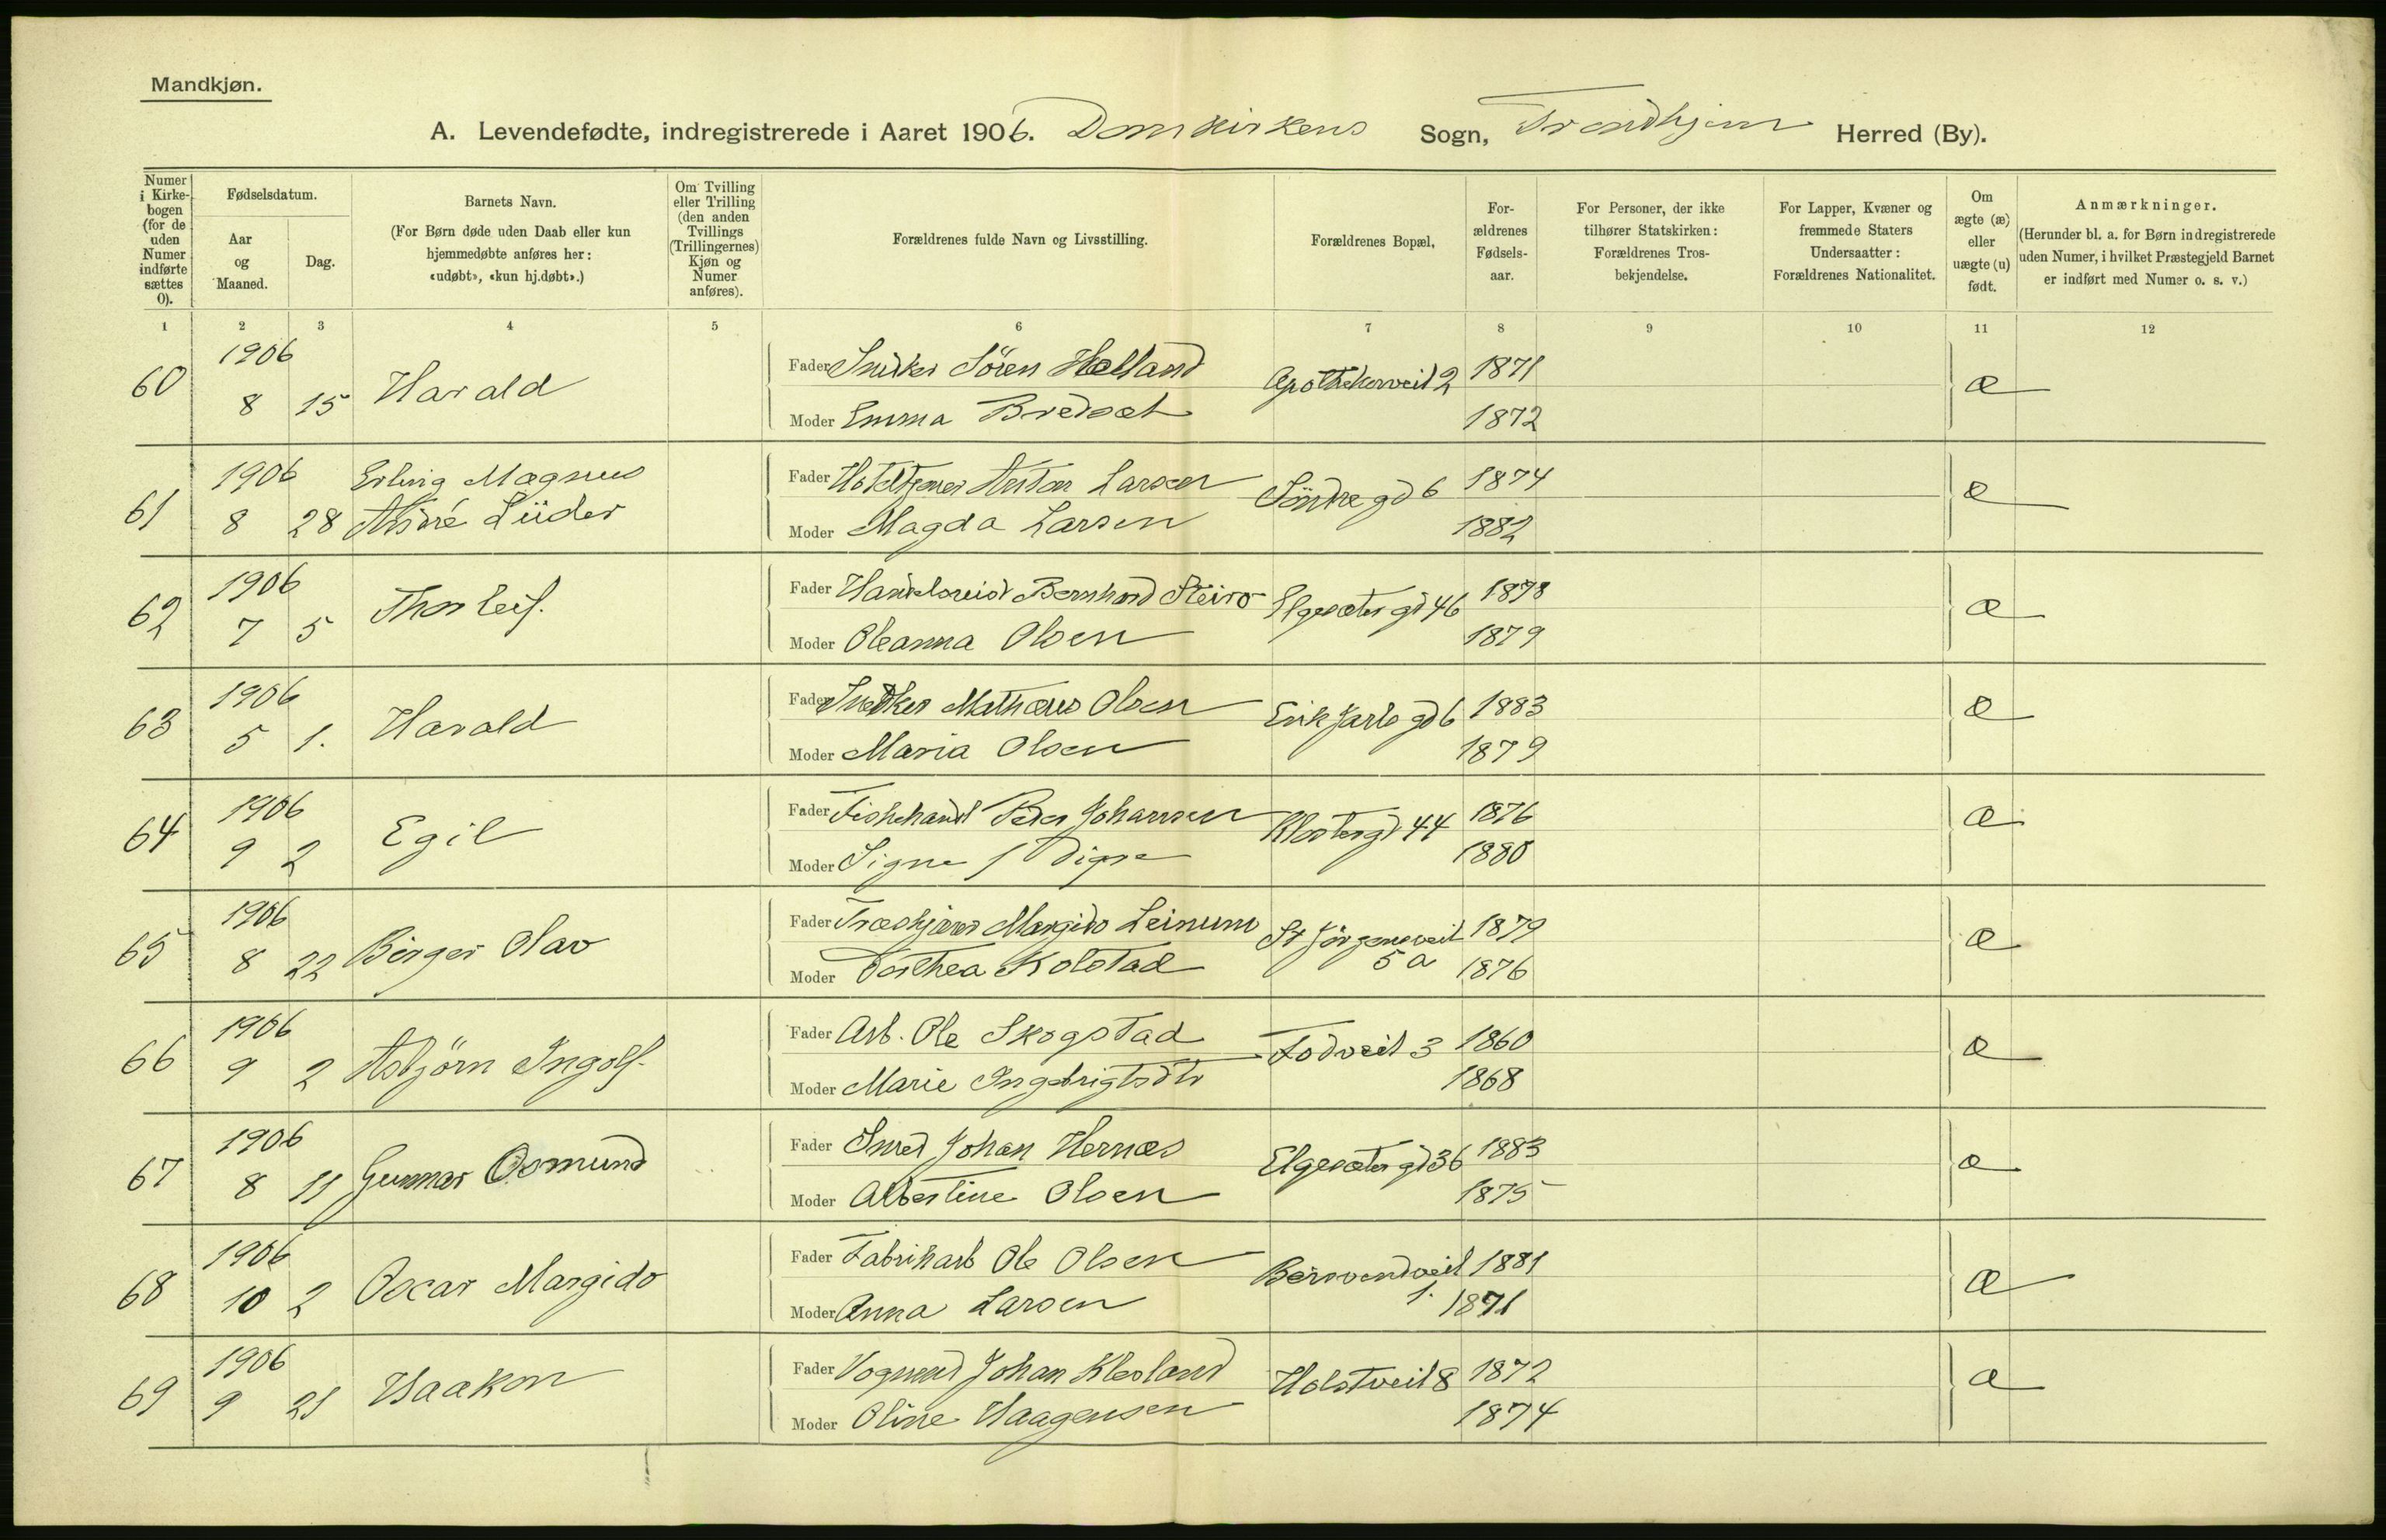 Mandkjøn.
A. Levendefødte, indregistrerede i Aaret 1906. Domkirkens Sogn, Trondhjem Herred (By).
Numer i Kirke-bogen (for de uden Numer indførte sættes 0).
Fødselsdatum.
Aar og Maaned.
Dag.
Barnets Navn.
(For Børn døde uden Daab eller kun hjemmedøbte anføres her: «udøbt», «kun hj.døbt».)
Om Tvilling eller Trilling (den anden Tvillings (Trillingernes) Kjøn og Numer anføres).
Forældrenes fulde Navn og Livsstilling.
Forældrenes Bopæl,
For-ældrenes Fødsels-aar.
For Personer, der ikke tilhører Statskirken: Forældrenes Tros-bekjendelse.
For Lapper, Kvæner og fremmede Staters Undersaatter: Forældrenes Nationalitet.
Om ægte (æ) eller uægte (u) født.
Anmærkninger.
(Herunder bl. a. for Børn indregistrerede uden Numer, i hvilket Præstegjeld Barnet er indført med Numer o. s. v.)
1 2 3 4 5 6 7 8 9 10 11 12
60 1906 8 15 Harald
Fader Snedker Sören Helland Apothekerveit 2 1871 æ
Moder Emma Bredsæt 1872
61 1906 8 28 Erling Magnus André Lüder
Fader Larsen Söndregd 6 1874 æ
Moder Magda Larsen 1882
62 1906 7 5 Thorleif.
Fader Bernhard Steiro Elgesæter gd 46 1878 æ
Moder Oleanna Olsen 1879
63 1906 5 1. Harald
Fader Snedker Mathæus Olsen Erik Jarls gd 6 1883 æ
Moder Maria Olsen 1879
64 1906 9 2 Egil
Fader Fiskehandl Peder Johansen Klostergd 44 1876 æ
Moder Signe Digre 1880
65 1906 8 22 Birger Olav
Fader Margido Leinum St Jörgensveit 5a 1879 æ
Moder Dorthea Kolstad 1876
66 1906 9 2 Asbjörn Ingolf.
Fader Arb. Ole Skogstad Fodveit 3 1860 æ
Moder Marie Ingebrigtsdtr 1868
67 1906 8 11 Gunnar Osmund
Fader Smed Johan Hernæs Elgesæter gd 36 1883 æ
Moder Albertine Olsen 1875
68 1906 10 2 Oscar Margido
Fader Fabrikarb Ole Olsen Bersvendveit 1. 1881 æ
Moder Anna Larsen 1871
69 1906 9 21 Haakon
Fader Vognmd Johan Klesland Holstveit 8 1872 æ
Moder Oline Haagensen 1874